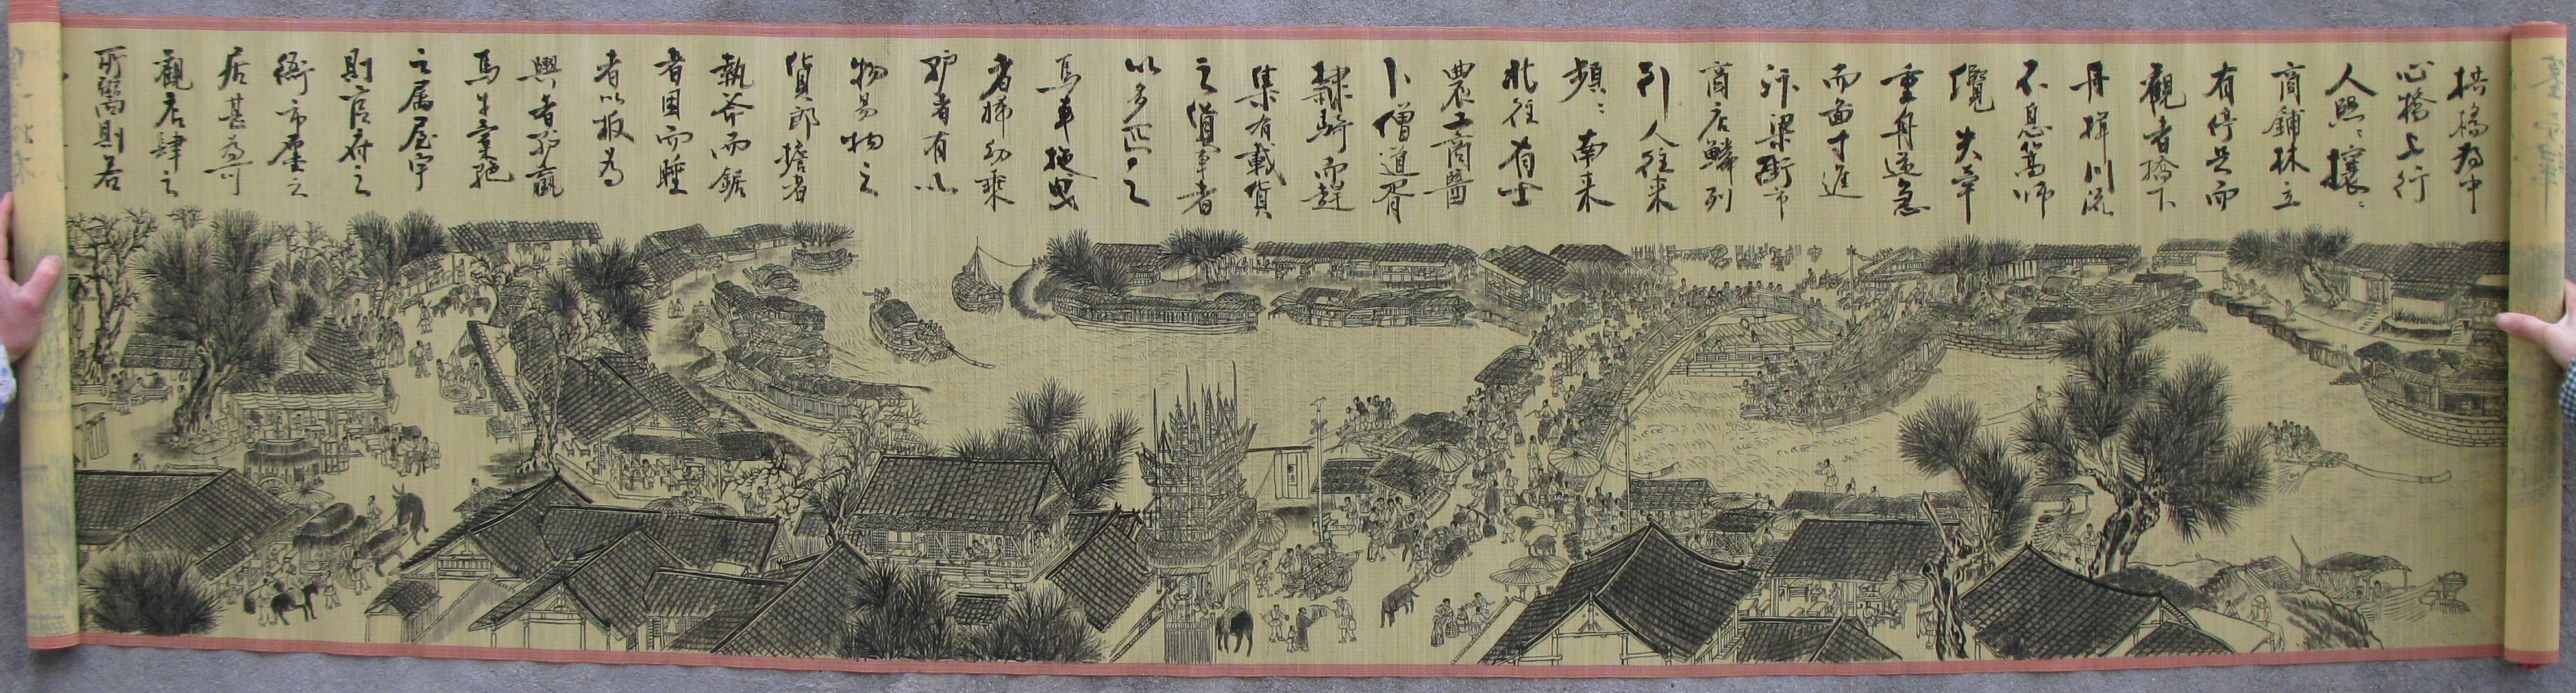 拱橋為中
心橋上行
人熙〻攘〻
商鋪林立
有停足而
觀者橋下
舟楫川流
不息篙師
纜夫牽
重舟逆急
而面寸進
汴梁街市
商店鱗列
引人往来
頻〻南来
北往有士
農工商醫
卜僧道胥
隸騎而趕
集有載貨
之傎車者
以多匹之
馬車拖曳
者婦幼乘
驴者有以
物易物之
貨郎擔者
執斧而鋸
者困而睡
者以板為
輿者驴羸
馬牛橐駞
之属屋宇
則官府之
衙市廛之
居甚為可
觀店肆之
所鬻則若